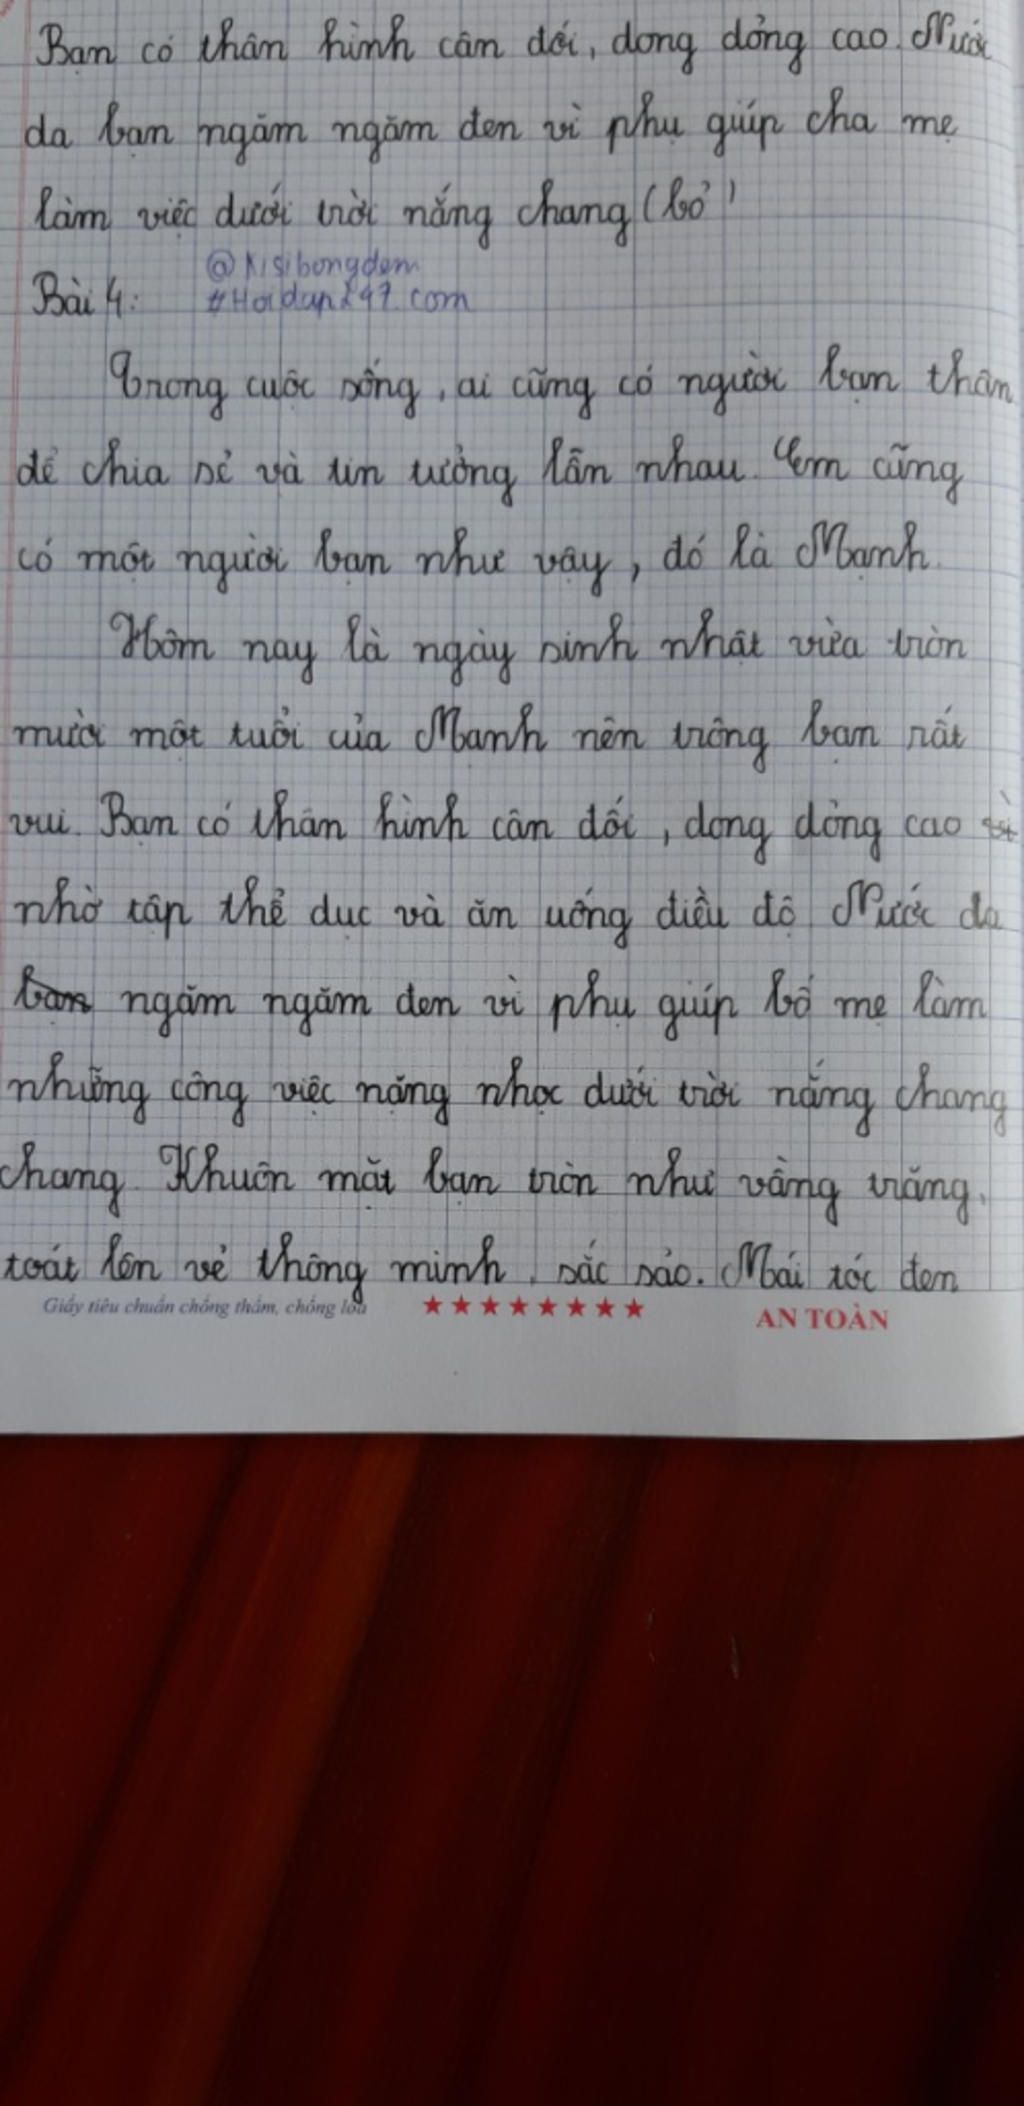 Bạn có thân hình cân đối, dong dỏng cao. Nước
da bạn ngăm ngăm đen vì phụ giúp cha mẹ
làm việc dưới trời nắng chang (bỏ)
@Kisibongdem
Bài 4: #Hoidap247.com
Trong cuộc sống, ai cũng có người bạn thân
để chia sẻ và tin tưởng lẫn nhau. Em cũng
có một người bạn như vậy, đó là Mạnh.
Hôm nay là ngày sinh nhật vừa tròn
mười một tuổi của Mạnh nên trông bạn rất
vui. Bạn có thân hình cân đối, dong dỏng cao
nhờ tập thể dục và ăn uống điều độ. Nước da
bạn ngăm ngăm đen vì phụ giúp bố mẹ làm
những công việc nặng nhọc dưới trời nắng chang
chang. Khuôn mặt bạn tròn như vầng trăng,
toát lên vẻ thông minh, sắc sảo. Mái tóc đen
Giấy tiêu chuẩn chống thấm, chống lóa ★★★★★★★★ AN TOÀN